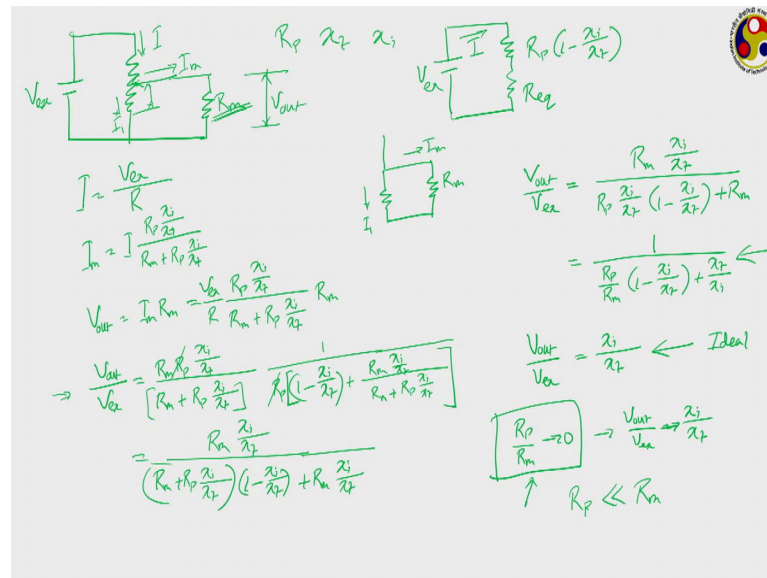 I
R_p x_t x_i
I_m
V_ex
I_1
R_m
V_out
I
V_ex
R_p (1 - x_i/x_t)
R_eq
I = V_ex / R
I_m = I (R_p x_i/x_t) / (R_m + R_p x_i/x_t)
V_out = I_m R_m = (V_ex / R) (R_p x_i/x_t) / (R_m + R_p x_i/x_t) R_m
→ V_out/V_ex = (R_m R_p x_i/x_t) / [R_m + R_p x_i/x_t] 1 / (R_p [(1 - x_i/x_t) + (R_m x_i/x_t) / (R_m + R_p x_i/x_t)])
= (R_m x_i/x_t) / ((R_m + R_p x_i/x_t)(1 - x_i/x_t) + R_m x_i/x_t)
I_m
R_m
I_1
V_out/V_ex = (R_m x_i/x_t) / (R_p x_i/x_t (1 - x_i/x_t) + R_m)
= 1 / (R_p/R_m (1 - x_i/x_t) + x_t/x_i) ←
V_out/V_ex = x_i/x_t ← Ideal
R_p/R_m → 0 → V_out/V_ex → x_i/x_t
↑ R_p << R_m